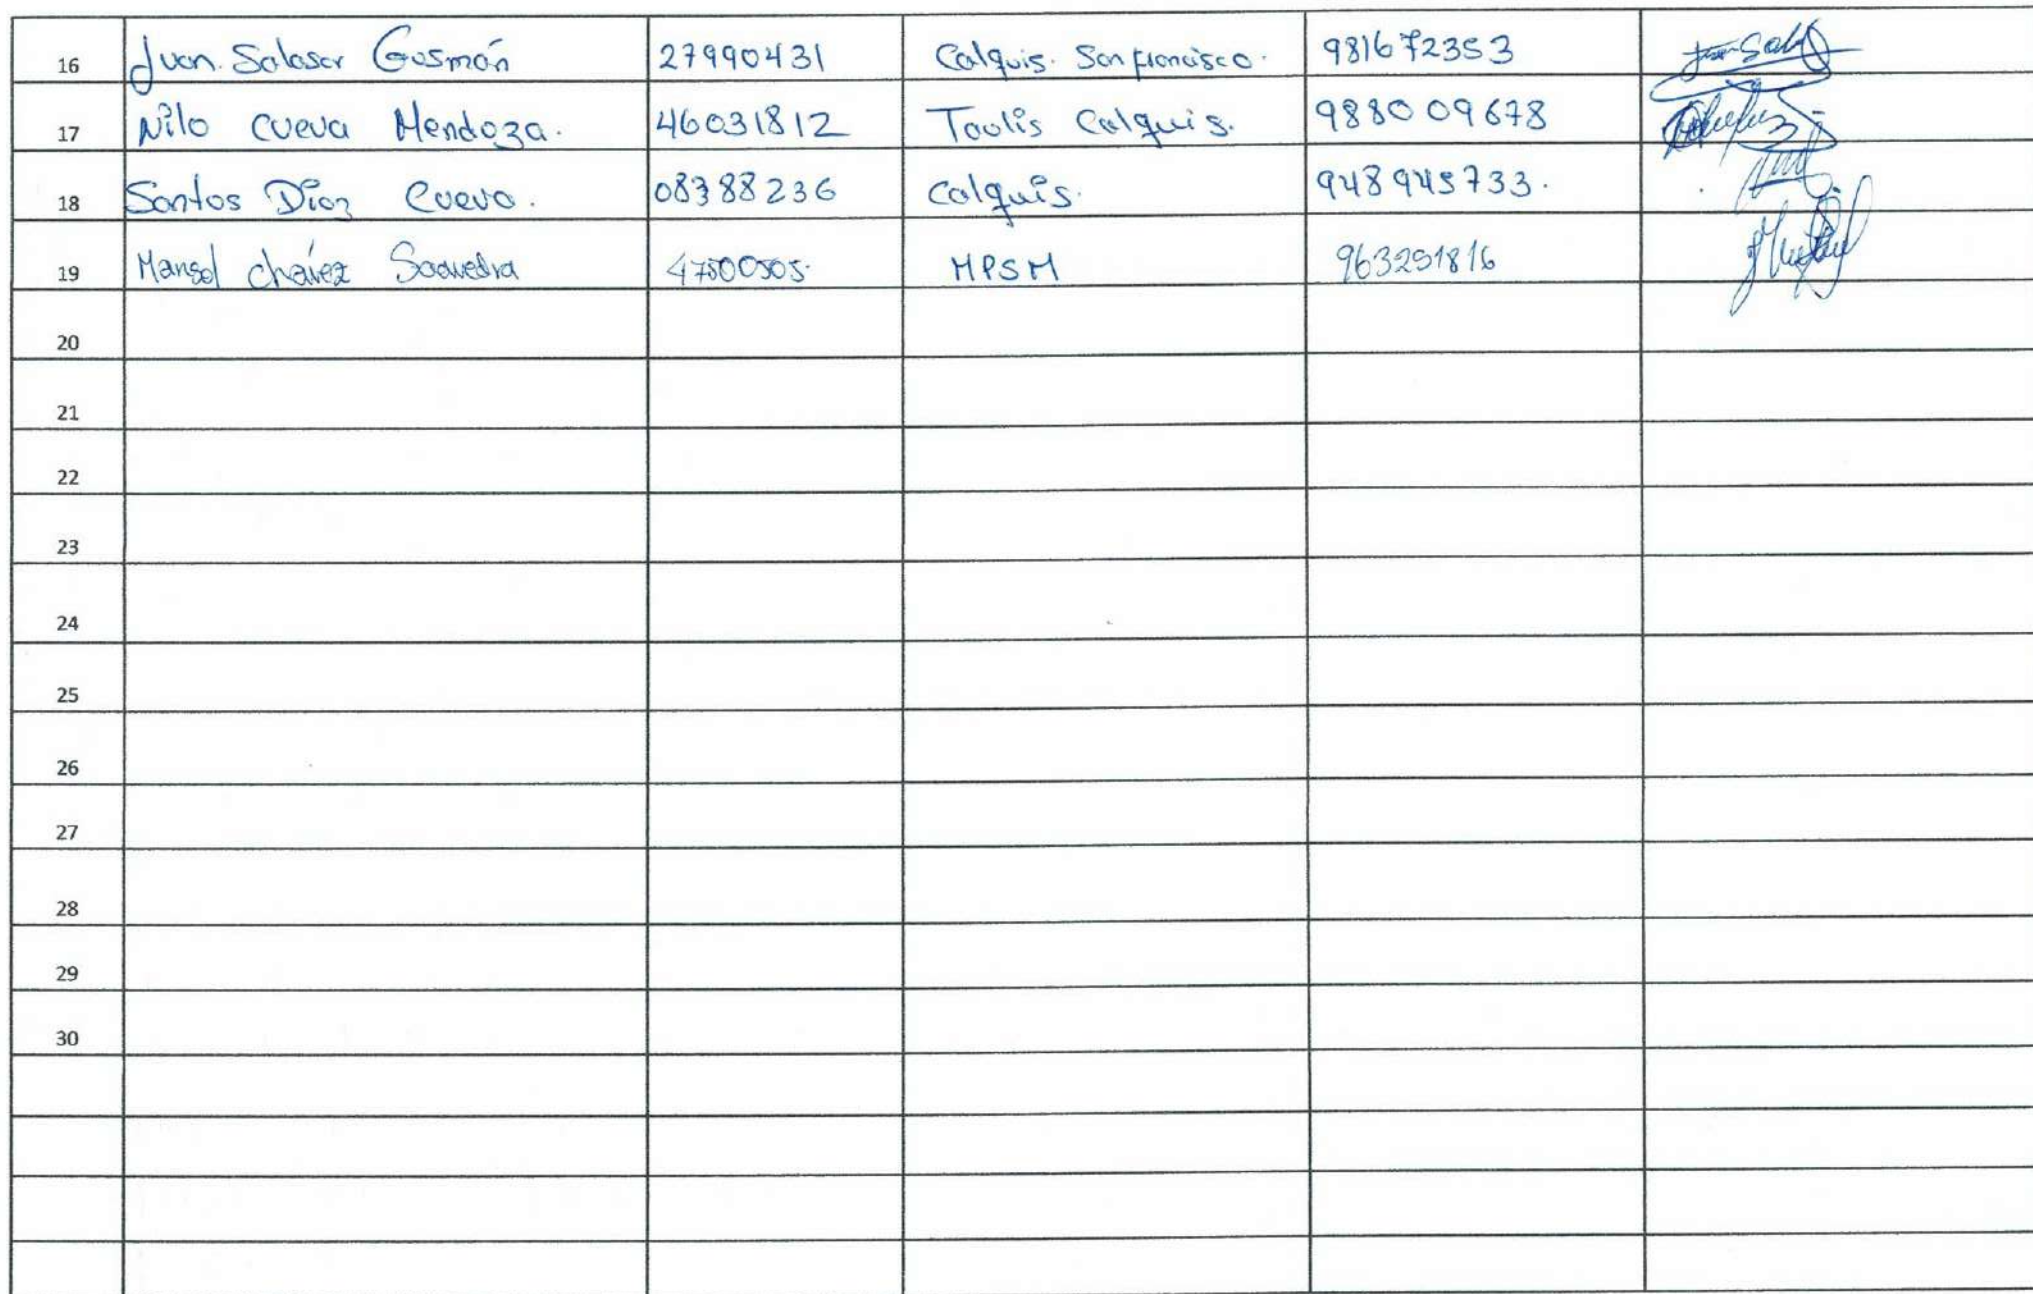 16 Juan. Salasar Gusmán 27990431 Calquis. San francisco. 981672353
17 Nilo cueva Mendoza. 46031812 Taulis Calquis. 988009678
18 Santos Díaz Cueva. 08388236 Calquis. 948945733.
19 Marisol chávez Saavedra 47500505. MPSM 963251816
20
21
22
23
24
25
26
27
28
29
30